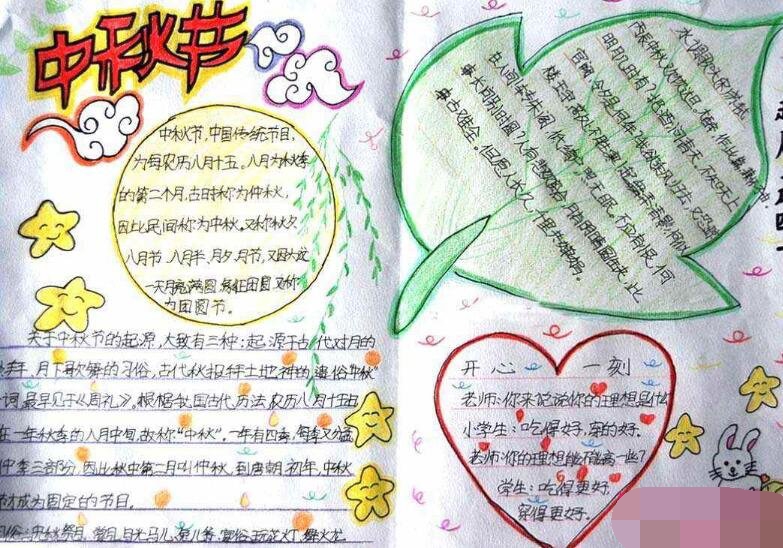 中秋节
中秋节，中国传统节日，
为每农历八月十五。八月为秋季
的第二个月，古时称为仲秋，
因此民间称为中秋。又称秋夕
八月节、八月半、月夕、月节，又因为这
一天月亮满圆，象征团圆，又称
为团圆节。
关于中秋节的起源，大致有三种：起源于古代对月的
月下歌舞的习俗，古代秋报拜土地神的遗俗。“中秋”
一词，最早见于《周礼》。根据我国古代历法，农历八月十五日
在一年秋季的八月中旬，故称“中秋”。一年有四季，每季又分
三部分，因此秋中第二月叫仲秋，到唐朝初年，中秋
成为固定的节日。
中秋祭月
水调歌头
丙辰中秋，欢饮达旦，大醉，作此篇
明月几时有？把酒问青天。不知天上
宫阙，今夕是何年？我欲乘风归去，又恐
不胜寒，起舞弄清影，何似
在人间！转朱阁，低绮户，照无眠。不应有恨，何
事长向别时圆？人有悲欢离合，月有阴晴圆缺，此
事古难全。但愿人长久，千里共婵娟。
开心一刻
老师：你来说说你的理想是什么
小学生：吃得好，穿的好。
老师：你的理想能不能高一些？
学生：吃得更好，
穿得更好。